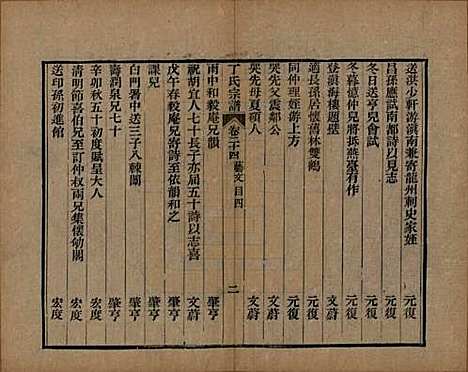 送洪少軒游滇南兼寄龍州刺史家姪 元復
昌孫應試南都詩以見志 元復
冬日送亨兒會試 元復
登滇海樓題壁 元復
冬暮憶仲兒將抵燕臺有作 元復
適長孫居懷舊林雙鶴 元復
同仲理姪游上方 文蔚
哭先父震鄰公 文蔚
哭先母夏碩人 文蔚
丁氏宗譜 卷二十四 藝文目四 二
雨中和毅庵兄韻 肇亨
祝胡宜人七十長子亦屆五十詩以志喜 文蔚
戊午春毅庵兄寄詩至依韻和之 肇亨
課兒 肇亨
白門署中送三子入棘闈 肇亨
壽潤泉兄七十 肇亨
辛卯秋五十初度賦呈大人 宏度
清明節喜伯兄至訂仲叔兩兄集懷幼闕 宏度
送印孫初進館 宏度